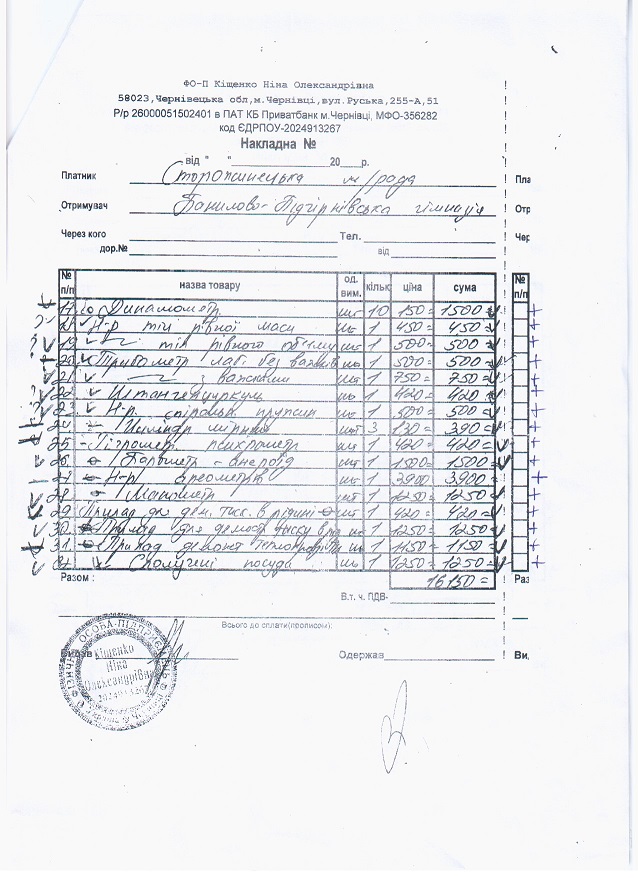 ФО-П Кіщенко Ніна Олександрівна
58023,Чернівецька обл,м.Чернівці,вул.Руська,255-А,51
Р/р 26000051502401 в ПАТ КБ Приватбанк м.Чернівці, МФО-356282
код ЄДРПОУ-2024913267
Накладна №
від " " 20 р.
Платник Сторожинецька м/рада
Отримувач Банилово-Підгірнівська гімназія
Через кого Тел.
дор.№ від
№ п/п назва товару од. вим. кільк ціна сума
Динамометр шт 10 150= 1500=
18 Н-р тіл рівної маси шт 1 450= 450=
19 тіл рівного об'єму шт 1 500= 500=
20 Трибометр лаб. без важків шт 1 500= 500=
21 з важками шт 1 750= 750=
22 Штангенциркуль шт 1 420= 420=
Н-р спіральн. пружин шт 1 500= 500=
Циліндр мірний шт 3 130= 390=
25 Гігрометр психрометр шт 1 420= 420=
26 Барометр - анероїд шт 1 1500= 1500=
27 Н-р ареометрів шт 1 3900 3900=
28 Манометр шт 1 1250= 1250=
29 Прилад дл дем. тиск. в рідині шт 1 420= 420=
30 Прилад для демонст тиску в шт 1 1250= 1250=
31 Прилад демонт шт 1 1150= 1150=
Сполучені посуди шт 1 1250= 1250=
Разом : 16150=
В.т. ч. ПДВ-
Всього до сплати(прописом):
Видав Одержав
ФІЗИЧНА ОСОБА-ПІДПРИЄМЕЦЬ
Кіщенко
Ніна
Олександрівна
2024913267
Пла
Отр
Чер
№
п/п
Раз
Ви,